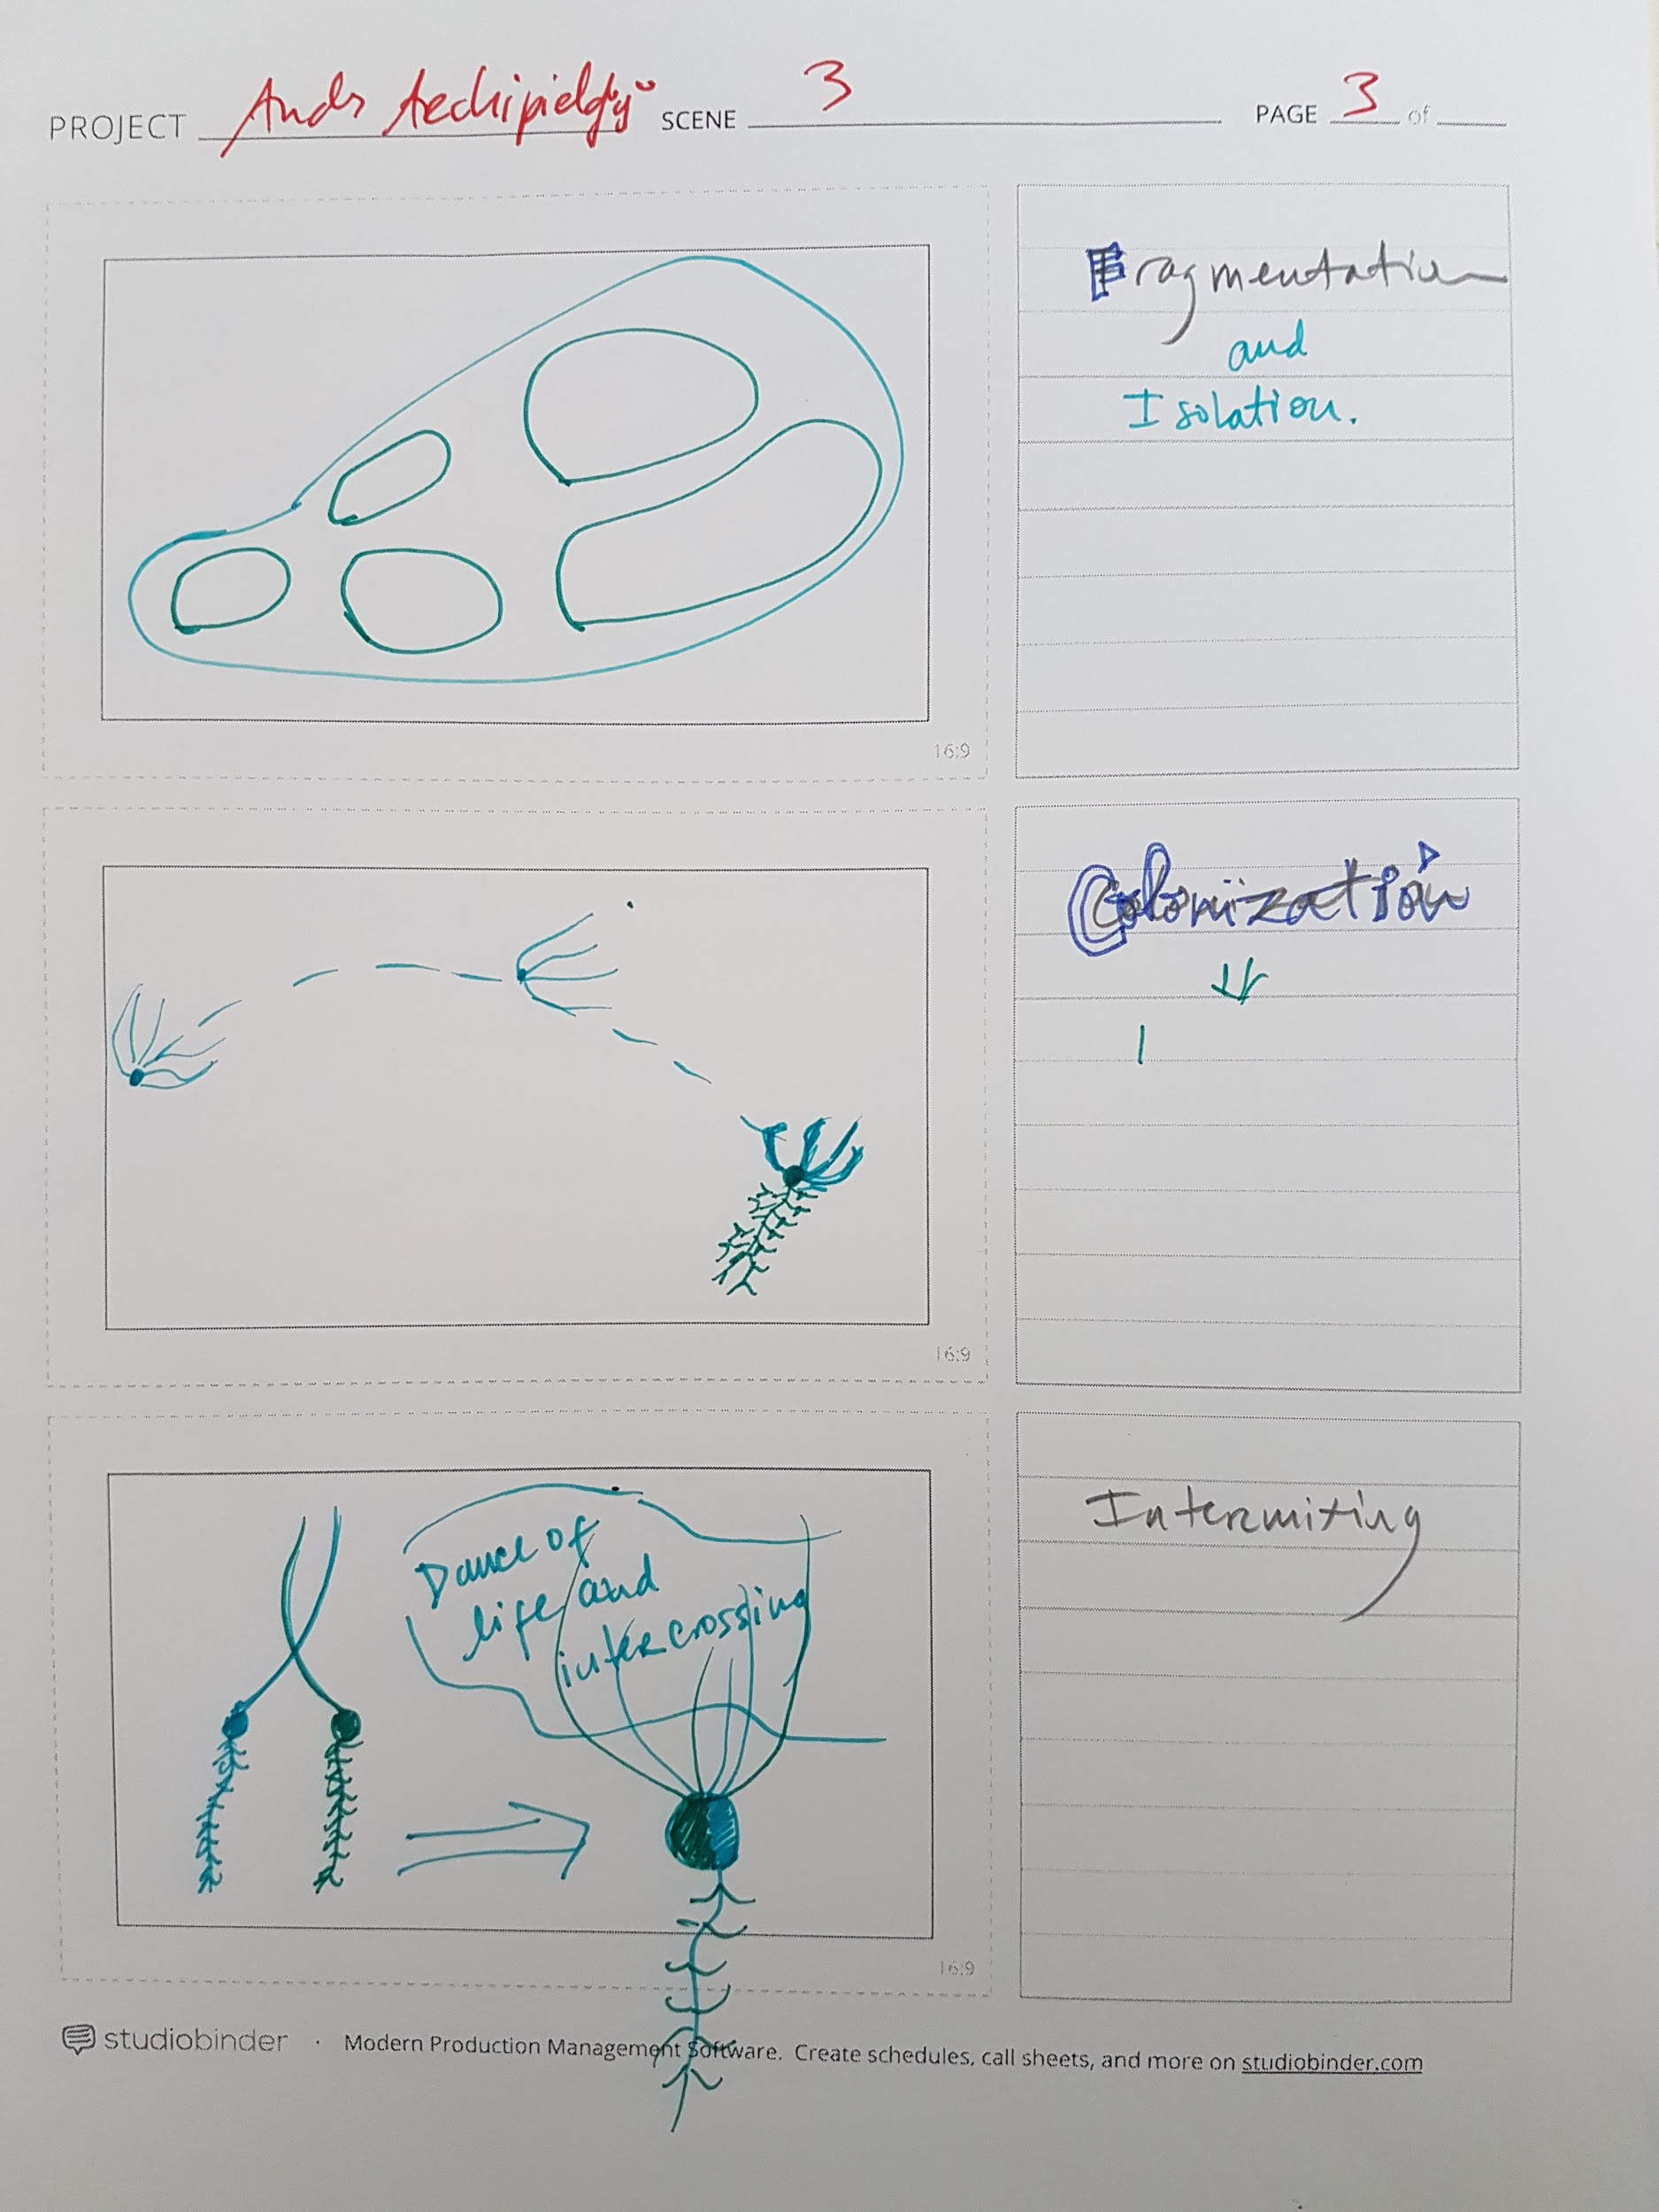 PROJECT Ands Archipielgy SCENE 3 PAGE 3 of
Fragmentation
and
Isolation.
16:9
Colonization
16:9
Dance of
life and
intercrossing
Intermixing
16:9
studiobinder · Modern Production Management Software. Create schedules, call sheets, and more on studiobinder.com